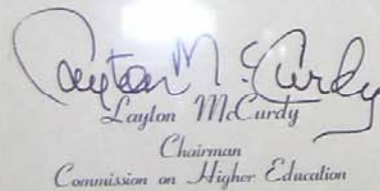 Layton McCurdy
Layton McCurdy
Chairman
Commission on Higher Education